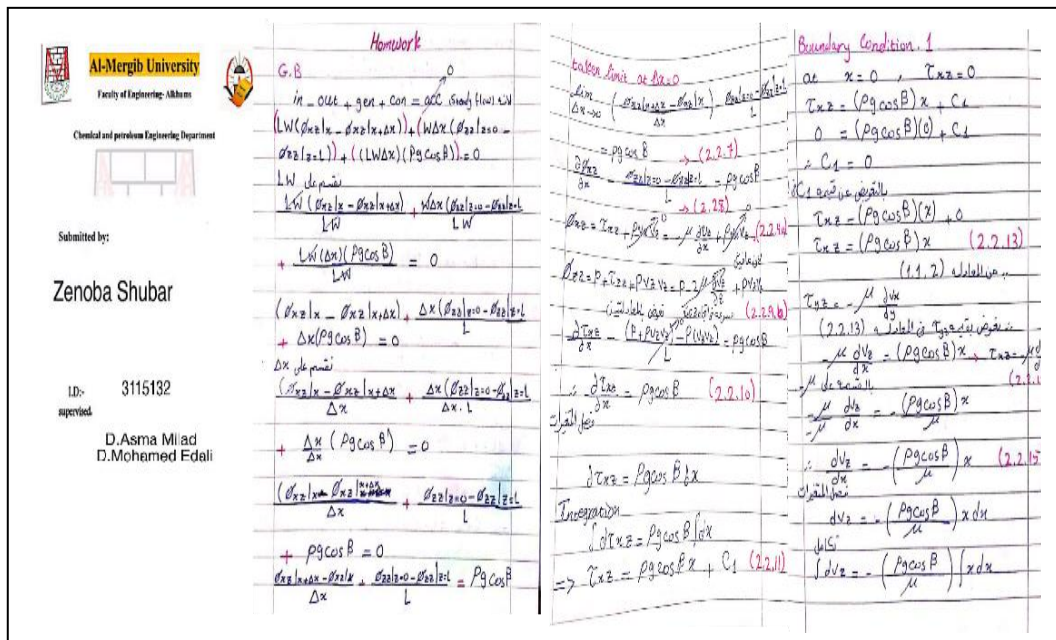 Al-Mergib University
Faculty of Engineering- Alkhums
Chemical and petroleum Engineering Department
Submitted by:
Zenoba Shubar
I.D:- 3115132
supervised.
D.Asma Milad
D.Mohamed Edali
Homework
G.B 0
in - out + gen + con = acc steady flow
(LW(Øxz|x - Øxz|x+Δx)) + (WΔx(Øzz|z=0 -
Øzz|z=L)) + ((LWΔx)(ρgcosβ)) = 0
نقسم على LW
LW(Øxz|x - Øxz|x+Δx)/LW + WΔx(Øzz|z=0 - Øzz|z=L)/LW
+ LW(Δx)(ρgcosβ)/LW = 0
(Øxz|x - Øxz|x+Δx) + Δx(Øzz|z=0 - Øzz|z=L)/L
+ Δx(ρgcosβ) = 0
نقسم على Δx
(Øxz|x - Øxz|x+Δx)/Δx + Δx(Øzz|z=0 - Øzz|z=L)/Δx.L
+ Δx/Δx (ρgcosβ) = 0
(Øxz|x - Øxz|x+Δx)/Δx + Øzz|z=0 - Øzz|z=L/L
+ ρgcosβ = 0
Øxz|x+Δx - Øxz|x/Δx - Øzz|z=0 - Øzz|z=L/L = ρgcosβ
taken limit at Δx=0
lim Δx→∞ (Øxz|x+Δx - Øxz|x/Δx) - Øzz|z=0 - Øzz|z=L/L
= ρgcosβ → (2.2.7)
∂Øxz/∂x - Øzz|z=0 - Øzz|z=L/L = ρgcosβ
→ (2.28)
Øxz = τxz + ρVxVz = -μ ∂Vz/∂x + ρVxVz (2.2.9a)
Øzz = P + τzz + ρVzVz = P - 2μ ∂Vz/∂z + ρVzVz
(2.2.9b)
∂τxz/∂x - (P + ρVzVz) - P(VzVz)/L = ρgcosβ
∴ ∂τxz/∂x = ρgcosβ (2.2.10)
نفصل المتغيرات
dτxz = ρgcosβ dx
Integration
∫dτxz = ρgcosβ ∫dx
=> τxz = ρgcosβ x + C1 (2.2.11)
Boundary Condition. 1
at x=0 , τxz=0
τxz = (ρgcosβ)x + C1
0 = (ρgcosβ)(0) + C1
∴ C1 = 0
بالتعويض عن قيمة C1
τxz = (ρgcosβ)(x) + 0
τxz = (ρgcosβ)x (2.2.13)
من المعادلة (1.1.2)
τyz = -μ ∂vx/∂y
(2.2.13)
-μ ∂Vz/∂x = (ρgcosβ)x → τxz = -μ
بالقسمة على -μ
-μ/-μ ∂vz/∂x = -(ρgcosβ)x/μ
∴ ∂vz/∂x = -(ρgcosβ/μ)x (2.2.15
نفصل المتغيرات
dvz = -(ρgcosβ/μ) x dx
تكامل
∫dvz = -(ρgcosβ/μ) ∫x dx